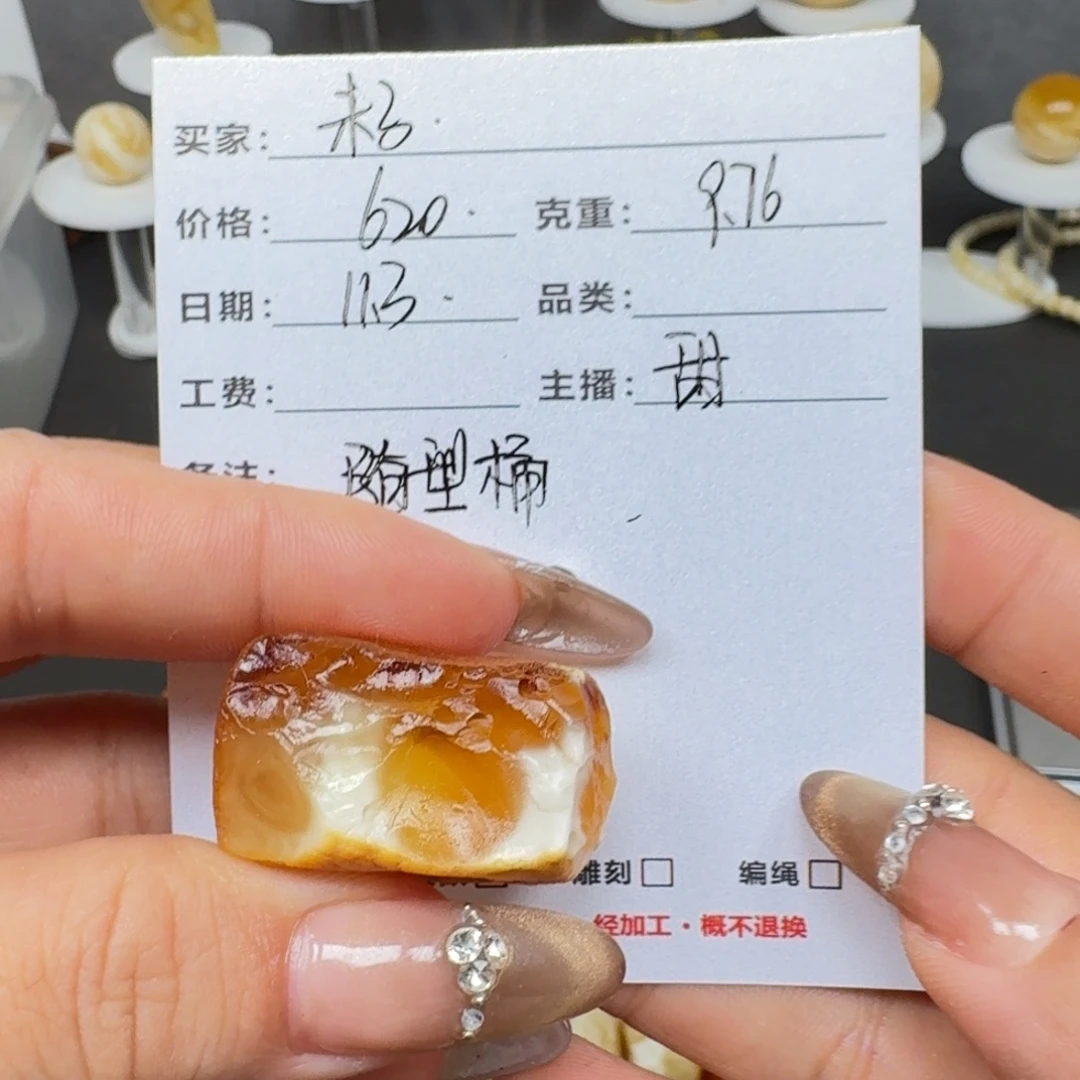 买家：
价格：620. 克重：9.76
日期：11.3. 品类：
工费： 主播：甜
随型桶
雕刻□ 编绳□
经加工·概不退换